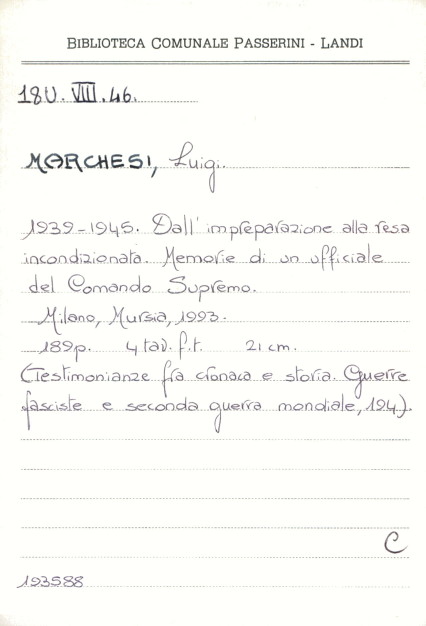 BIBLIOTECA COMUNALE PASSERINI - LANDI
18U. VIII. 46.
MARCHESI, Luigi.
1939-1945. Dall' impreparazione alla resa
incondizionata. Memorie di un ufficiale
del Comando Supremo.
Milano, Mursia, 1993.
189p. 4 tav. f.t. 21 cm.
(Testimonianze fra cronaca e storia. Guerre
fasciste e seconda guerra mondiale, 194).
C
193588